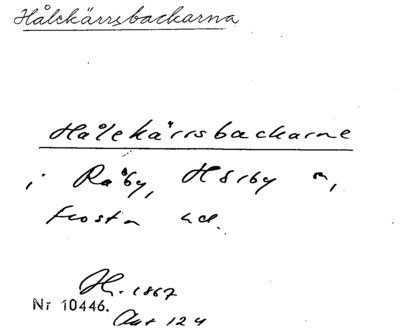 Hålekärrsbackarna
Hålekärrsbackarne
i Råby, Hörby n,
Frosta hd.
H. 1867
Nr 10446.
Akt 124